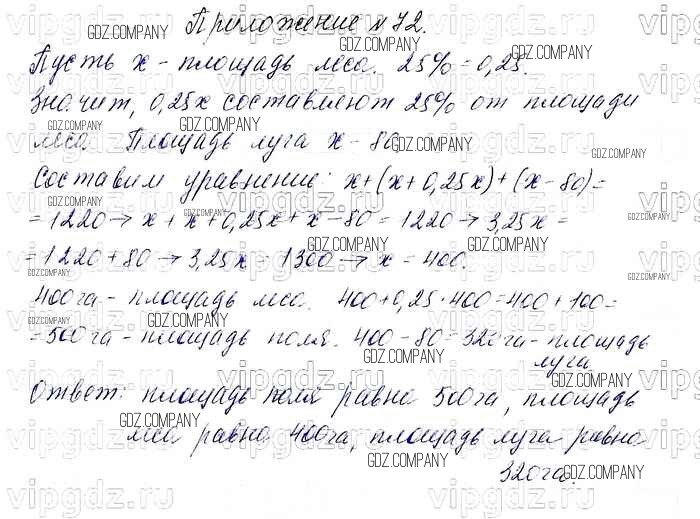 Приложение №72.
Пусть x - площадь леса. 25% = 0,25.
Значит, 0,25x составляют 25% от площади
леса. Площадь луга x - 80.
Составим уравнение: x+(x+0,25x)+(x-80)=
=1220 → x+x+0,25x+x-80=1220 → 3,25x=
=1220+80 → 3,25x=1300 → x=400.
400га - площадь леса. 400+0,25·400=400+100=
=500га - площадь поля. 400-80=320га - площадь
луга
Ответ: площадь поля равна 500га, площадь
леса равна 400га, площадь луга равна
320га.